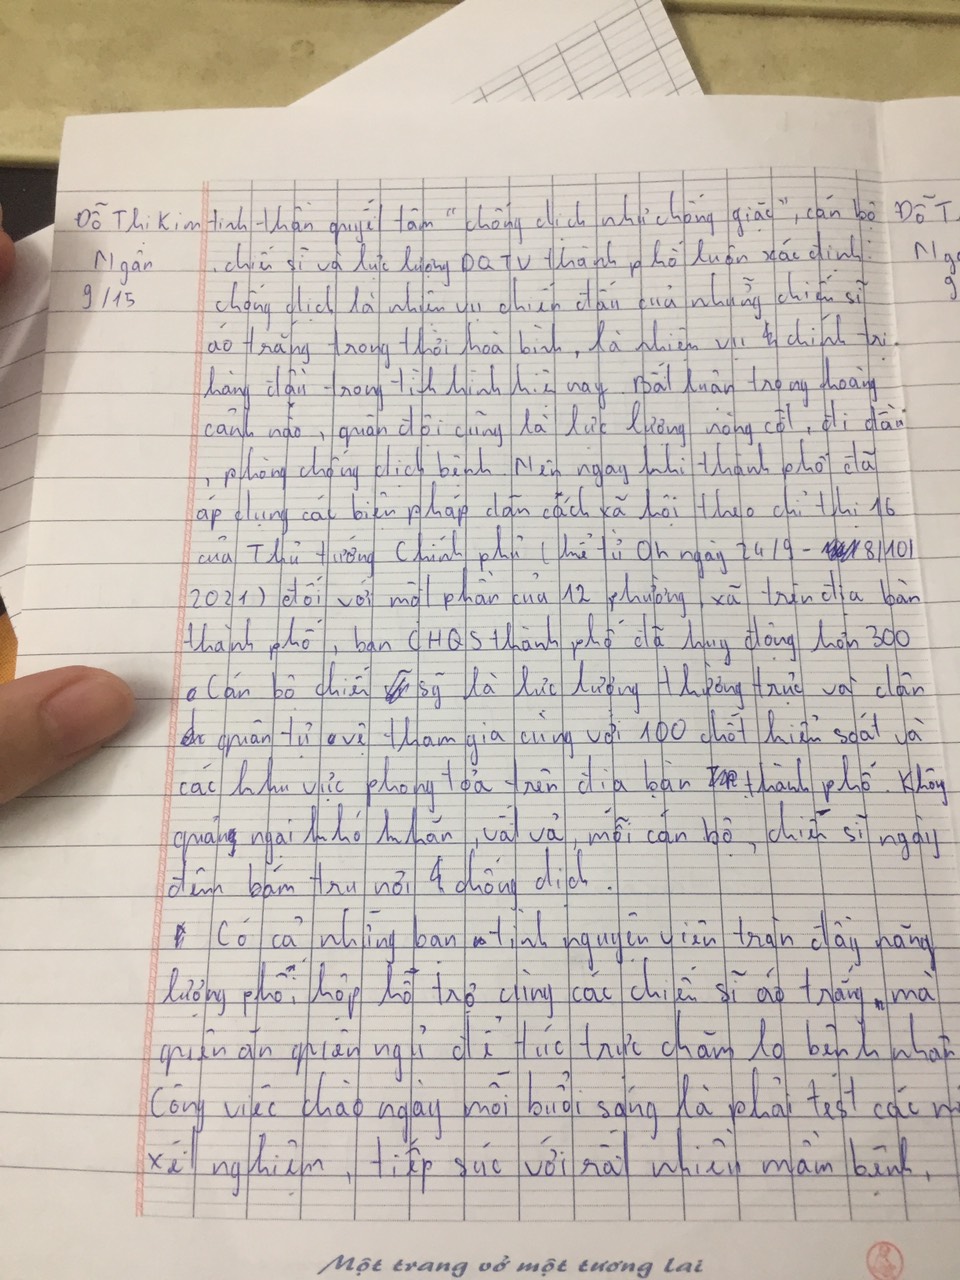 Đỗ Thi Kim
Ngân
9/15
tinh thần quyết tâm "chống dịch như chống giặc", cán bộ
chiến sĩ và lực lượng DQTV thành phố luôn xác định:
chống dịch là nhiệm vụ chiến đấu của những chiến sĩ
áo trắng trong thời hoà bình, là nhiệm vụ chính trị
hàng đầu trong tình hình hiện nay. Bất luận trong hoàng
cảnh nào, quân đội cũng là lực lượng nòng cốt, đi đầu
, phòng chống dịch bệnh. Nên ngay khi thành phố đã
áp dụng các biện pháp dãn cách xã hội theo chỉ thị 16
của Thủ tướng Chính phủ (kể từ 0h ngày 24/9 - 8/10/
2021) đối với một phần của 12 phường, xã trên địa bàn
thành phố, ban CHQS thành phố đã huy động hơn 300
Cán bộ chiến sỹ là lực lượng thường trực và dân
quân tử vệ tham gia cùng với 100 chốt kiểm soát và
các khu vực phong toả trên địa bàn thành phố. Không
quảng ngại khó khăn, vất vả, mỗi cán bộ, chiến sĩ ngày
đêm bám trụ nơi chống dịch.
Có cả những bạn tình nguyện viên tràn đầy năng
lượng phối hợp hỗ trợ cùng các chiến sĩ áo trắng, mà
quên ăn quên ngủ để túc trực chăm lo bệnh nhân
Công việc chào ngày mỗi buổi sáng là phải test các
xét nghiệm, tiếp xúc với rất nhiều mầm bệnh,
Đỗ T
Ng
9
Một trang vở một tương lai